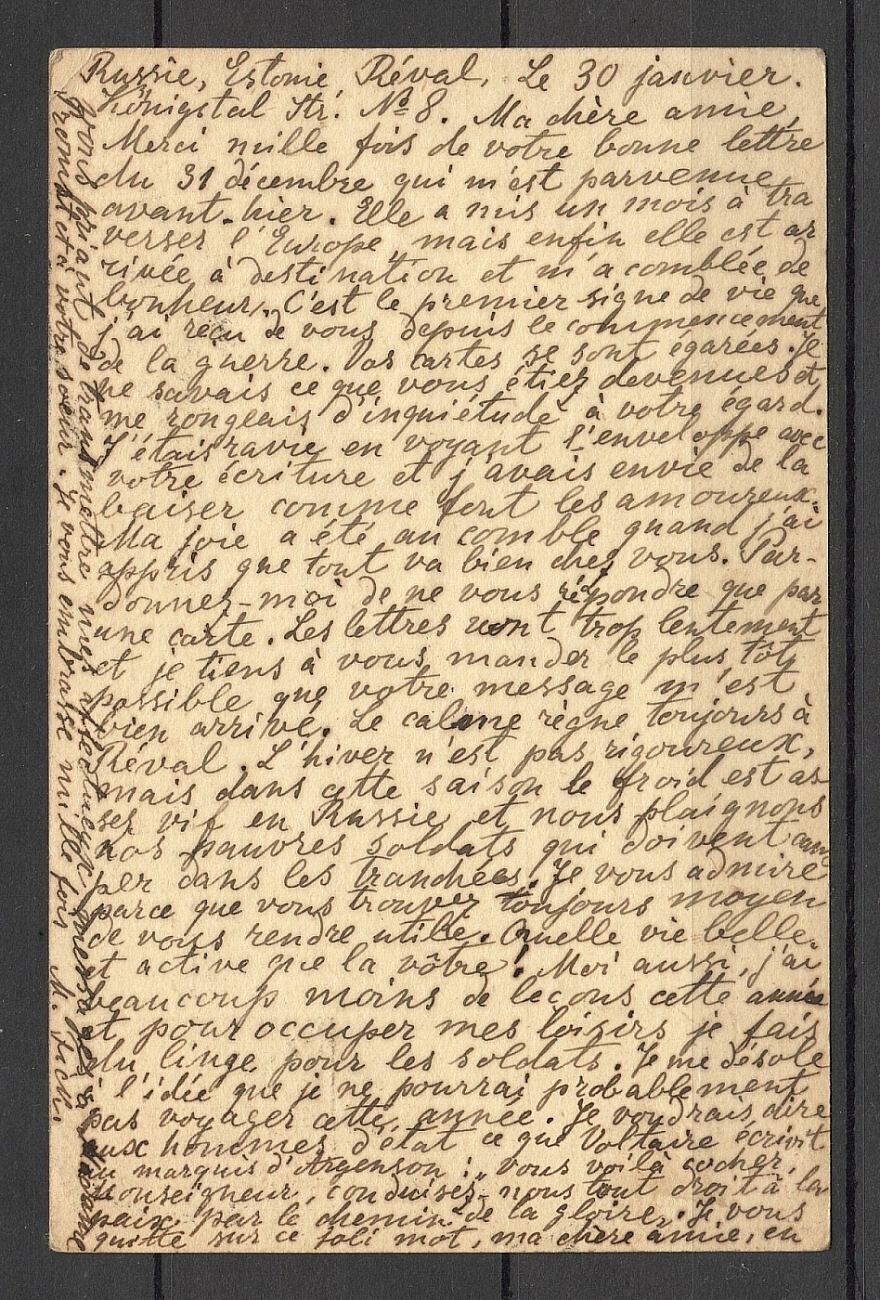 Russie, Estonie Réval, Le 30 janvier.
Königstal Str. № 8. Ma chère amie,
Merci mille fois de votre bonne lettre
du 31 décembre qui m'est parvenue
avant-hier. Elle a mis un mois à tra
verser l'Europe, mais enfin elle est ar
rivée à destination et m'a comblée de
bonheur. C'est le premier signe de vie que
j'ai reçu de vous depuis le commencement
de la guerre. Vos cartes se sont égarées. Je
ne savais ce que vous étiez devenues et
me rongeais d'inquiétude à votre égard.
J'étais ravie en voyant l'enveloppe avec
votre écriture et j'avais envie de la
baiser comme font les amoureux.
Ma joie a été au comble quand j'ai
appris que tout va bien chez vous. Par-
donnez-moi de ne vous répondre que par
une carte. Les lettres vont trop lentement
et je tiens à vous mander le plus tôt
possible que votre message m'est
bien arrivé. Le calme règne toujours à
Réval. L'hiver n'est pas rigoureux,
mais dans cette saison le froid est as
sez vif en Russie et nous plaignons
nos pauvres soldats qui doivent cam
per dans les tranchées. Je vous admire
parce que vous trouvez toujours moyen
de vous rendre utile. Quelle vie belle
et active que la vôtre! Moi aussi, j'ai
beaucoup moins de leçons cette année
et pour occuper mes loisirs je fais
du linge pour les soldats. Je me désole
à l'idée que je ne pourrai probablement
pas voyager cette année. Je voudrais dire
aux hommes d'état ce que Voltaire écrivit
au marquis d'Argenson: „vous voilà cocher,
Monseigneur, conduisez-nous tout droit à la
paix par le chemin de la gloire". Je vous
quitte sur ce joli mot, ma chère amie, en
vous priant de transmettre mes affectueux messages à Madame
et à votre soeur. Je vous embrasse mille fois M.